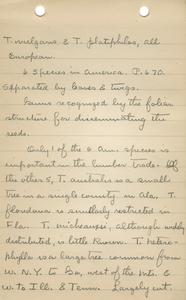 T. vulgaris & T. platiphilos, all
European.
6 species in America. P. 670.
Separated by leaves & twigs.
Genus recognized by the foliar
structure for disseminating the
seeds.
Only 1 of the 6 Am. species is
important in the lumber trade. Of
the other 5, T. australis is a small
tree in a single county in Ala. T.
floridana is similarly restricted in
Fla. T. michauxii, although widely
distributed, is little known. T. hetero-
phylla is a large tree common from
W. N.Y. to Ga., west of the mts. &
w. to Ill. & Tenn. Largely cut